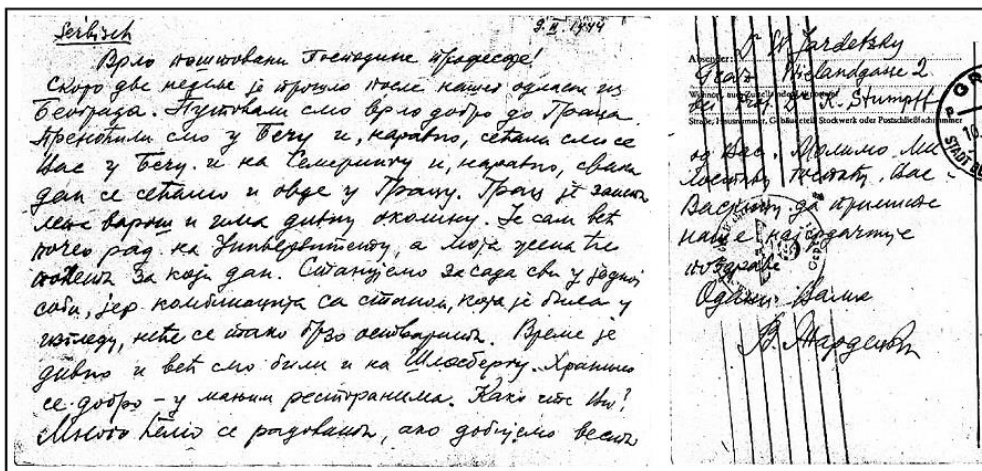 Serbisch
9. II. 1944
Врло поштовани Господине професоре!
Скоро две недеље је прошло после нашег одласка из
Београда. Путовали смо врло добро до Граца.
Преноћили смо у Бечу и, наравно, сећали смо се
Вас у Бечу и на Семерингу и, наравно, сваки
дан се сећамо и овде у Грацу. Грац је заиста
леп варош и има дивну околину. Ја сам већ
почео рад на Универзитету, а моја жена ће
почети за који дан. Станујемо за сада сви у једној
соби, јер комбинација са станом, која је била у
изгледу, неће се тако брзо остварити. Време је
дивно и већ смо били и на Шлосбергу. Хранимо
се добро – у мањим ресторанима. Како сте Ви?
Много ћемо се радовати, ако добијемо вести
Absender: Dr W. Jardetzky
Graz Wielandgasse 2
bei Prof. Dr K. Stumpff
Straße, Hausnummer, Gebäudeteil, Stockwerk oder Postschließfachnummer
од Вас. Молимо Ми
лостиву Госпођу и Вас
да примите
наше најсрдачније
поздраве
Одани Вама
В. Жардецки
GR
10.
STADT DE